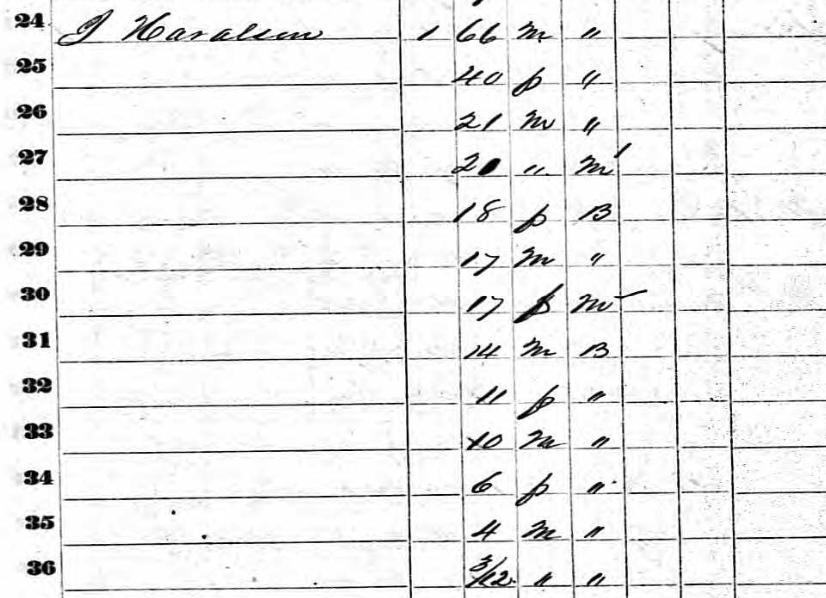 24 J Haralson 1 66 m "
25 40 f "
26 21 m "
27 20 " M
28 18 f B
29 17 m "
30 17 f M
31 14 m B
32 11 f "
33 10 m "
34 6 f "
35 4 m "
36 3/12 " "